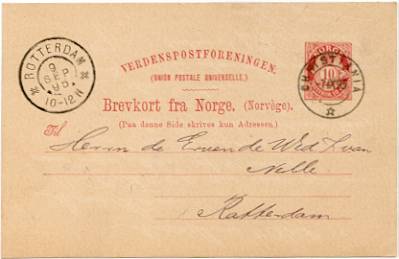 ROTTERDAM
9
SEP
95
10-12N
VERDENSPOSTFORENINGEN.
(UNION POSTALE UNIVERSELLE.)
NORGE
10
CHRISTIANIA
Brevkort fra Norge. (Norvège.)
(Paa denne Side skrives kun Adressen.)
Til
Herrn de Erven de Wed J. van
Nelle
Rotterdam